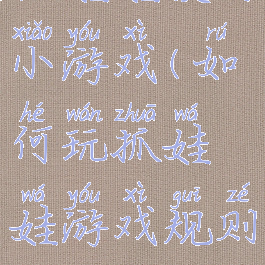 xiǎo yóu xì rú
小游戏(如
hé wán zhuā wá
何玩抓娃
wá yóu xì guī zé
娃游戏规则